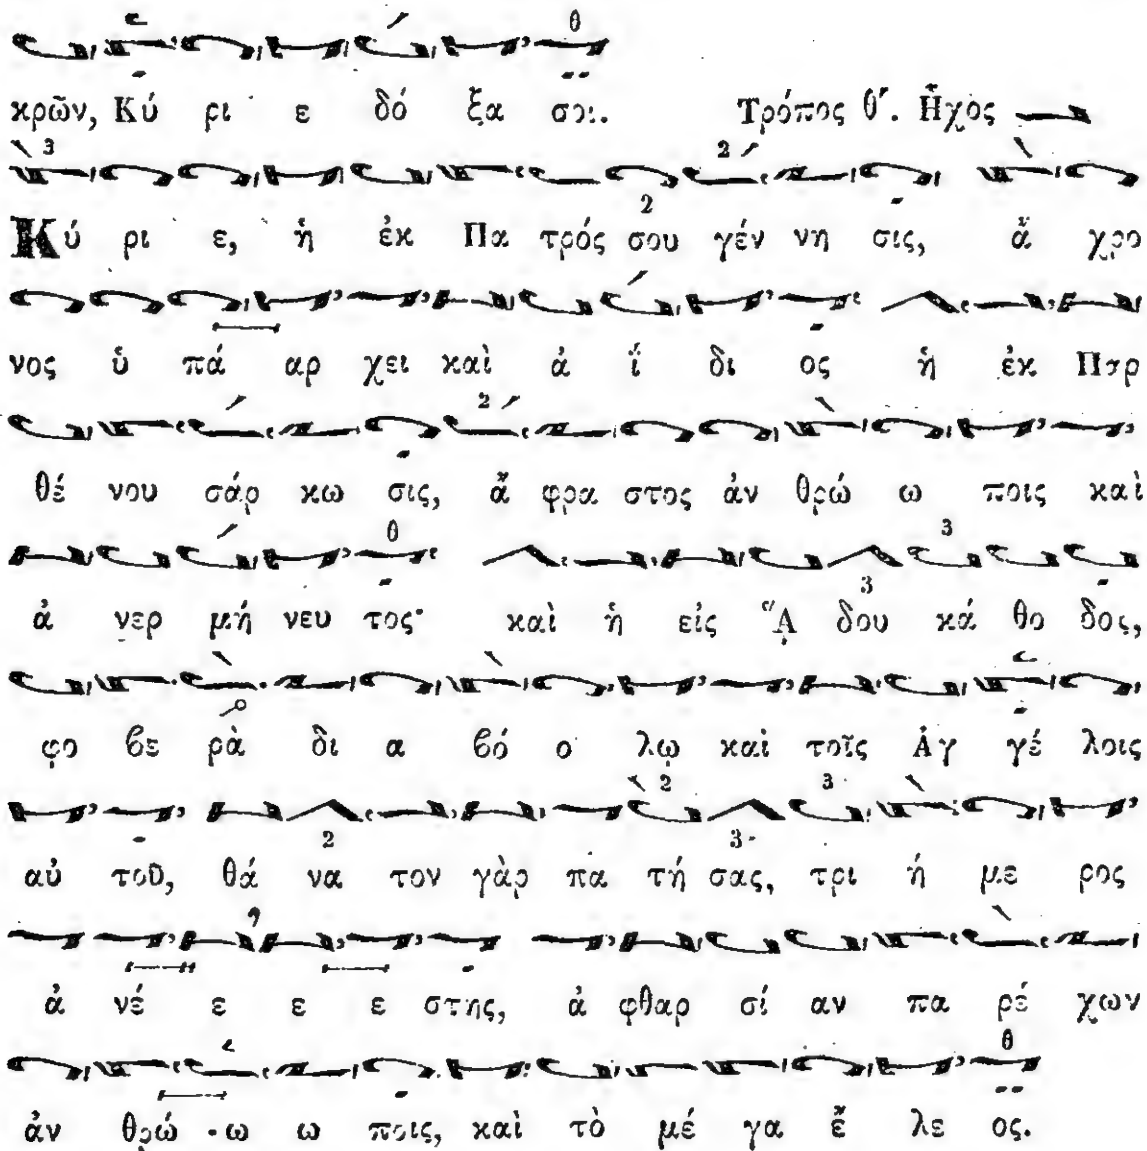 κρῶν, Κύ ρι ε δό ξα σοι. Τρόπος θʹ. Ἦχος
Κύ ρι ε, ἡ ἐκ Πα τρός σου γέν νη σις, ἄ χρο
νος ὑ πά αρ χει καὶ ἀ ΐ δι ος ἡ ἐκ Παρ
θέ νου σάρ κω σις, ἄ φρα στος ἀν θρώ ω ποις καὶ
ἀ νερ μή νευ τος· καὶ ἡ εἰς ᾍ δου κά θο δος,
φο ϐε ρὰ δι α ϐό ο λῳ καὶ τοῖς Ἀγ γέ λοις
αὐ τοῦ, θά να τον γὰρ πα τή σας, τρι ή με ρος
ἀ νέ ε ε ε στης, ἀ φθαρ σί αν πα ρέ χων
ἀν θρώ ω ω ποις, καὶ τὸ μέ γα ἔ λε ος.